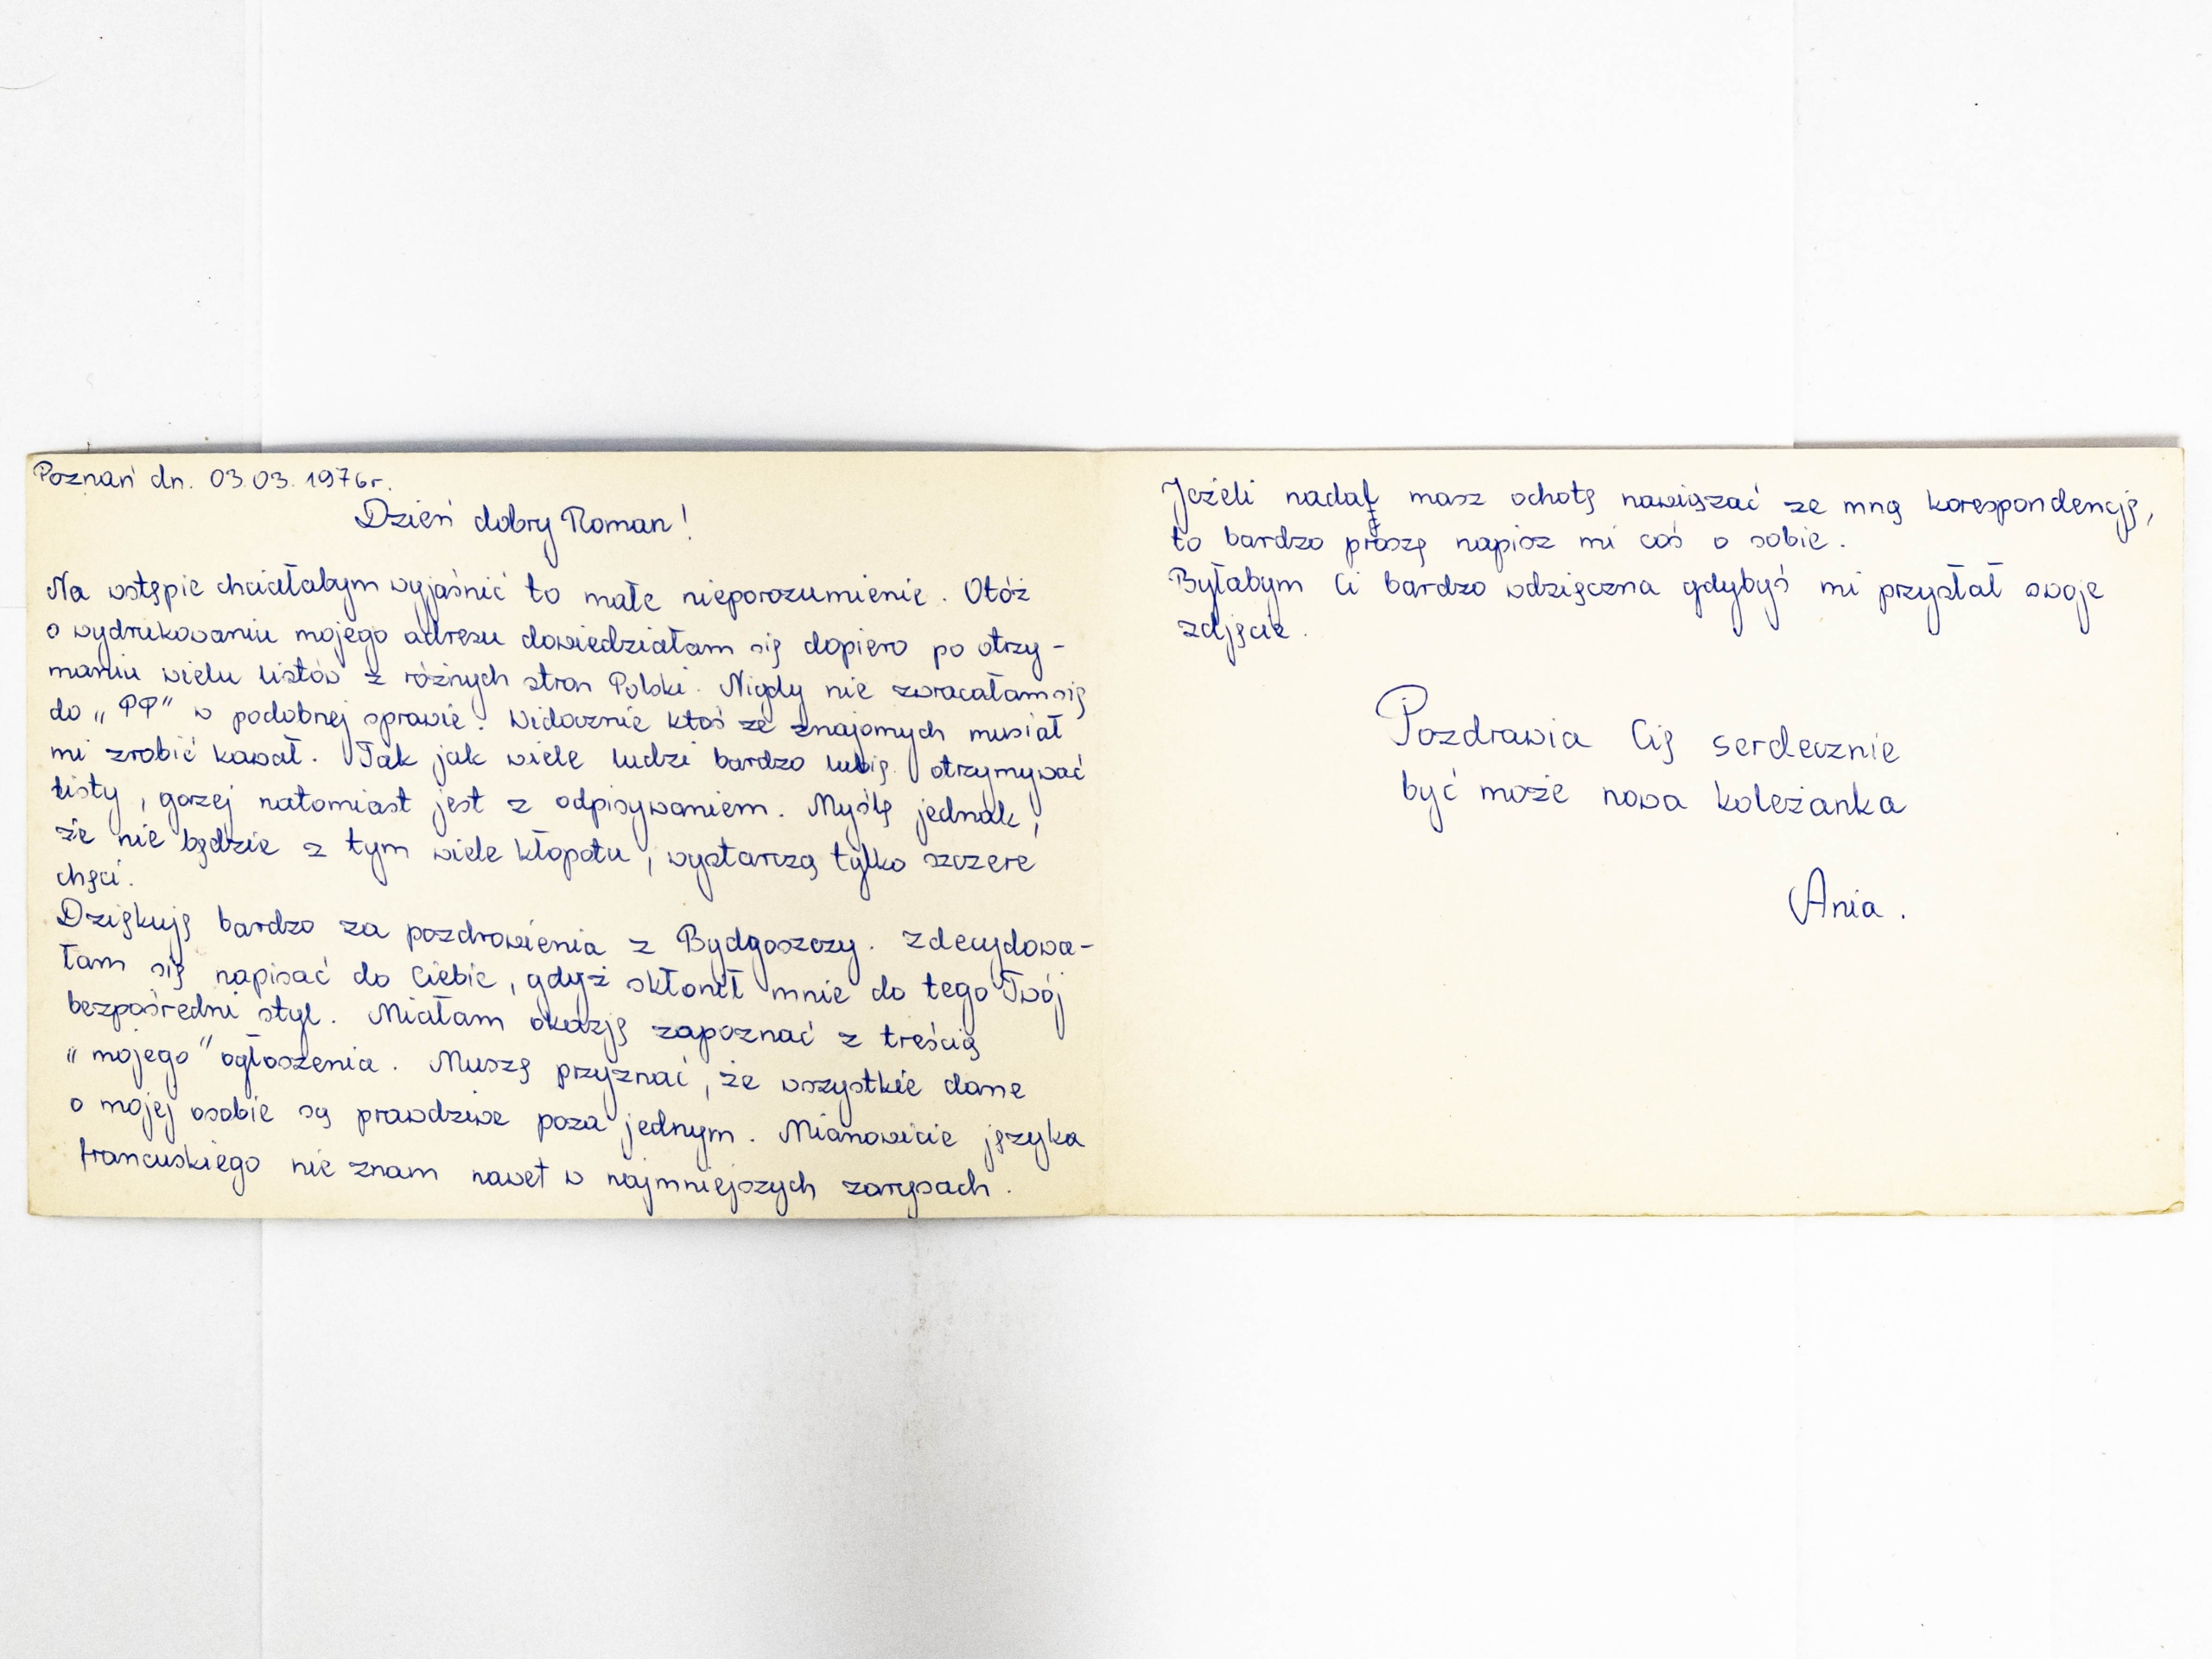 Poznań dn. 03.03.1976r.
Dzień dobry Roman!
Na wstępie chciałabym wyjaśnić to małe nieporozumienie. Otóż
o wydrukowaniu mojego adresu dowiedziałam się dopiero po otrzy-
maniu wielu listów z różnych stron Polski. Nigdy nie zwracałam się
do „PP" w podobnej sprawie. Widocznie ktoś ze znajomych musiał
mi zrobić kawał. Tak jak wiele ludzi bardzo lubię otrzymywać
listy, gorzej natomiast jest z odpisywaniem. Myślę jednak,
że nie będzie z tym wiele kłopotu, wystarczą tylko szczere
chęci.
Dziękuję bardzo za pozdrowienia z Bydgoszczy. Zdecydowa-
łam się napisać do Ciebie, gdyż skłonił mnie do tego Twój
bezpośredni styl. Miałam okazję zapoznać z treścią
„mojego" ogłoszenia. Muszę przyznać, że wszystkie dane
o mojej osobie są prawdziwe poza jednym. Mianowicie języka
francuskiego nie znam nawet w najmniejszych zarysach.
Jeżeli nadal masz ochotę nawiązać ze mną korespondencję,
to bardzo proszę napisz mi coś o sobie.
Byłabym Ci bardzo wdzięczna gdybyś mi przysłał swoje
zdjęcie.
Pozdrawia Cię serdecznie
być może nowa koleżanka
Ania.